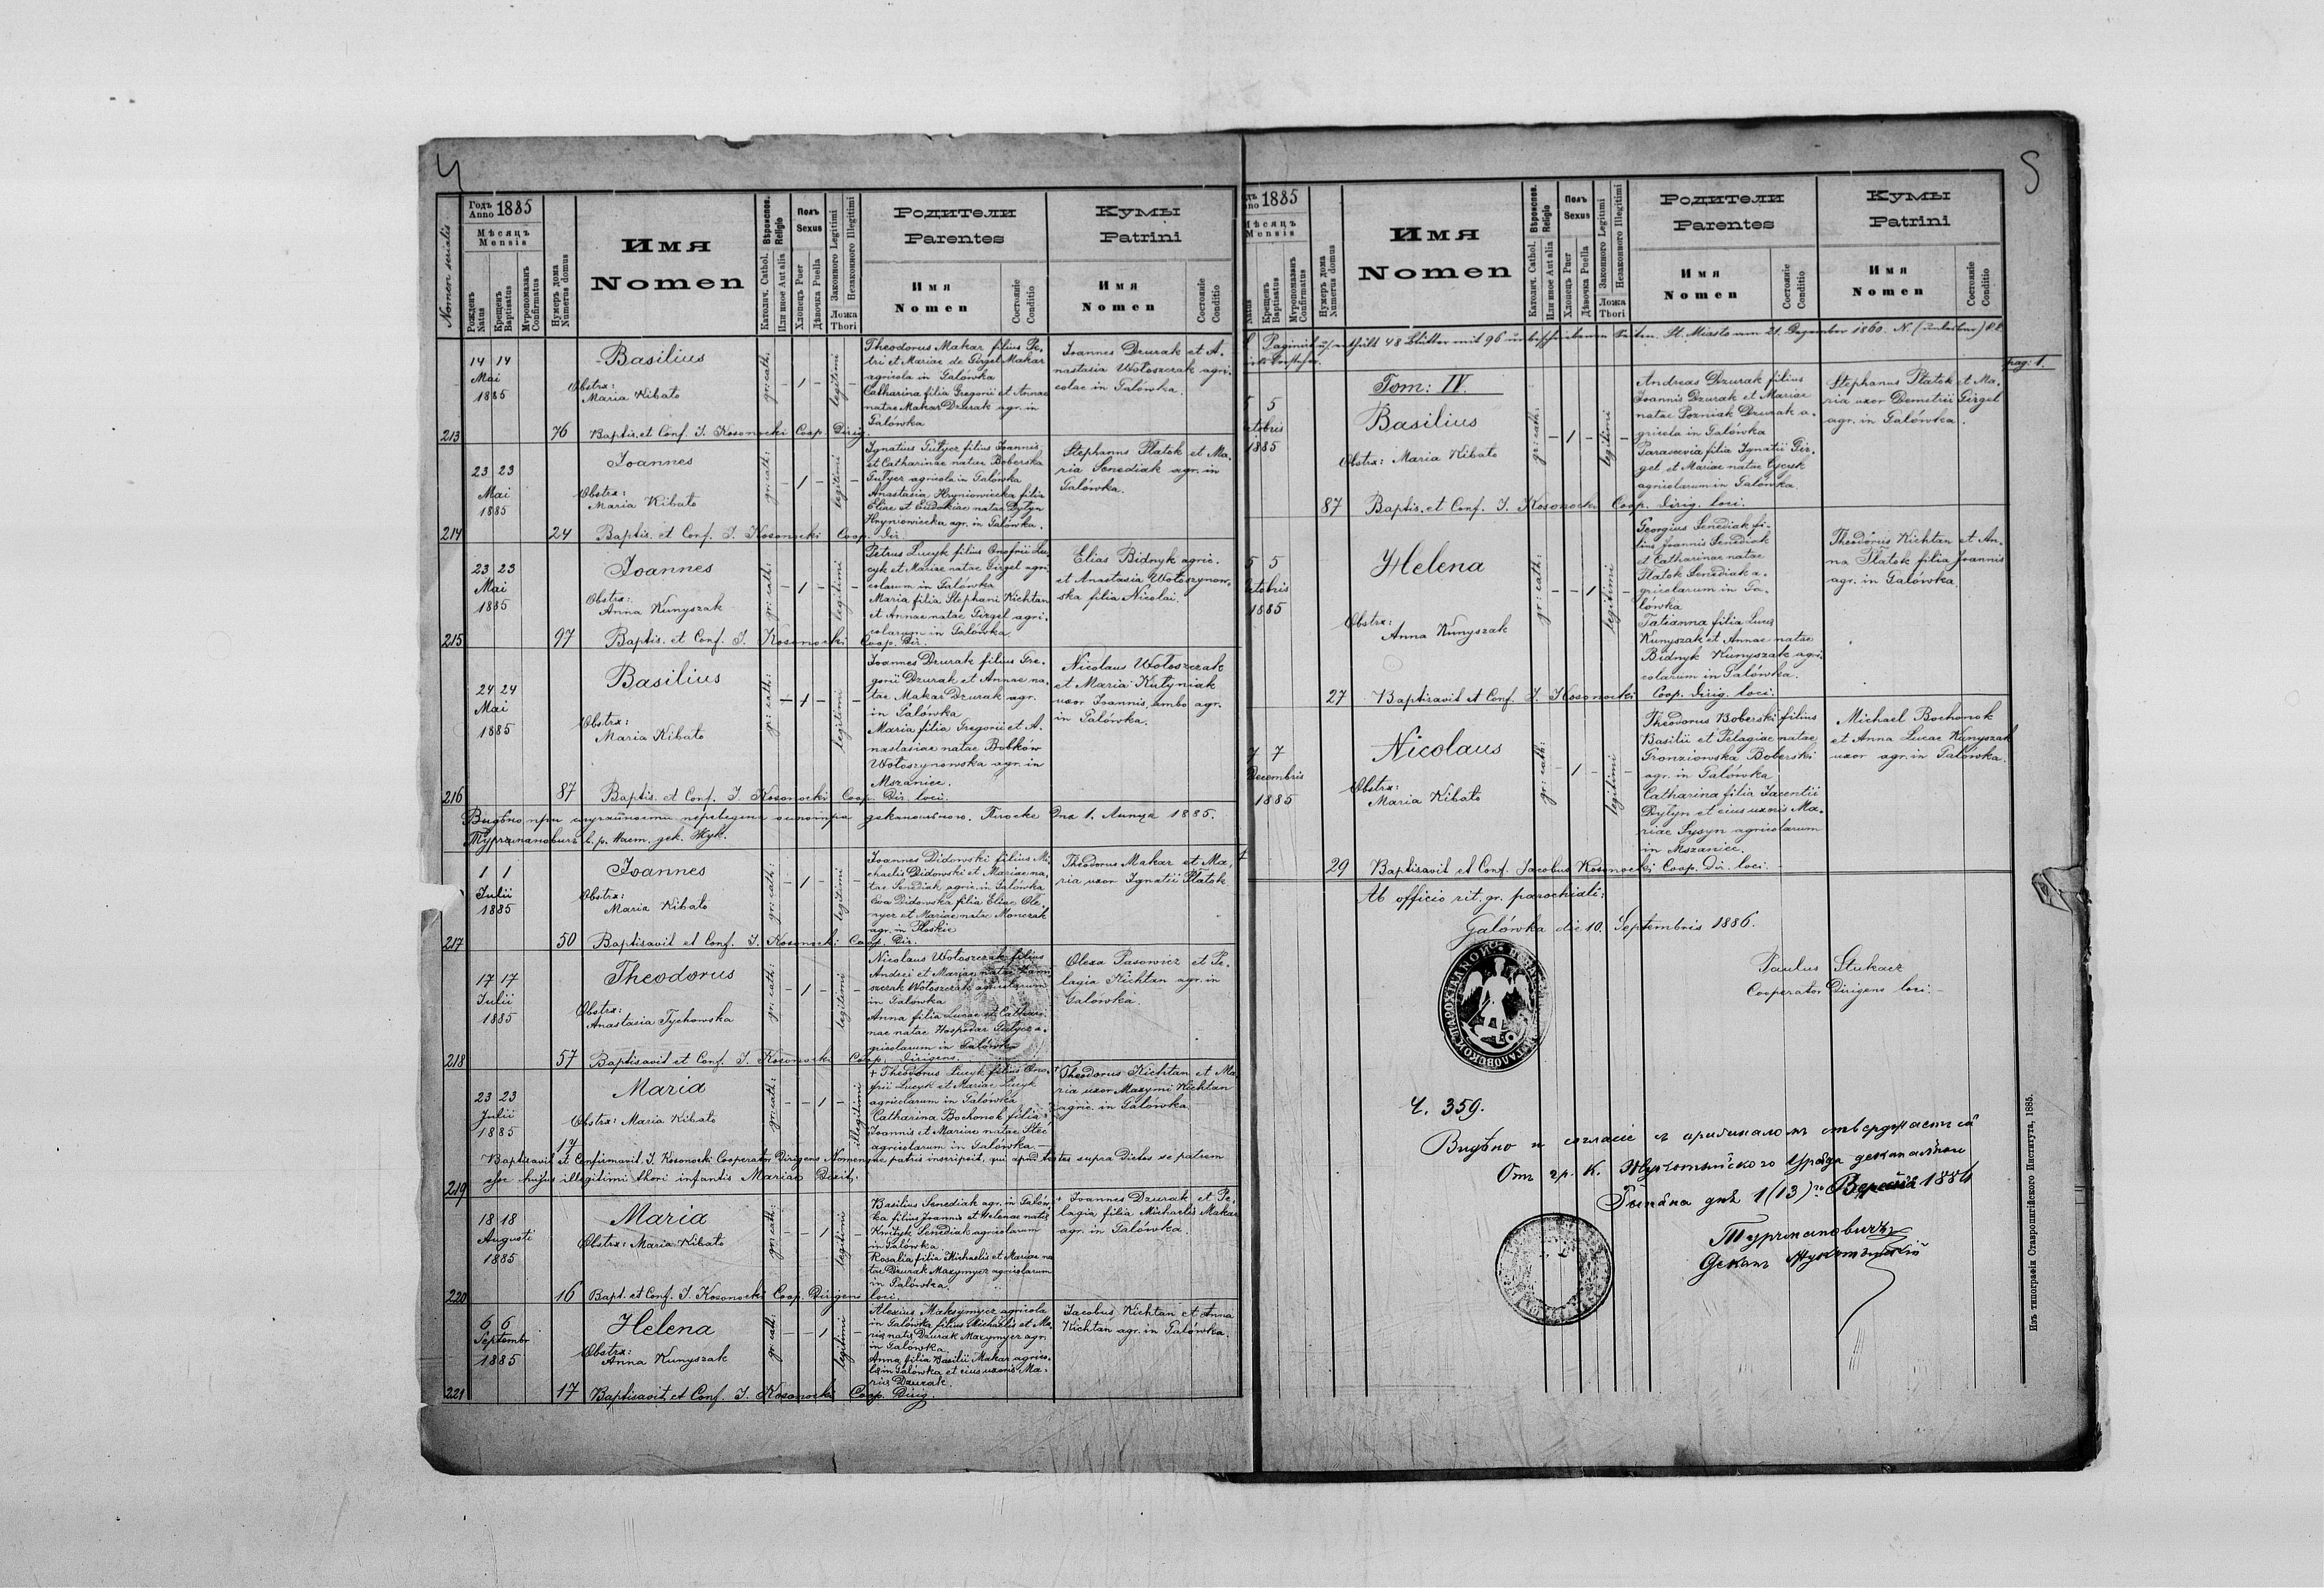 4
Nomen serialis
Годъ Anno 1885
Мѣсяцъ
Mensis
Рожденъ Natus
Крещенъ Baptisatus
Мѵропомазанъ Confirmatus
Нумеръ дома Numerus domus
Имя
Nomen
Вѣроиспов. Religio
Католич. Cathol.
Или иное Aut alia
Полъ Sexus
Хлопецъ Puer
Дѣвочка Puella
Законного Legitimi
Незаконного Illegitimi
Ложа Thori
Родители
Parentes
Имя
Nomen
Состояніе Conditio
Кумы
Patrini
Имя
Nomen
Состояніе Conditio
213
14 14
Mai
1885
76
Basilius
Obstrx:
Maria Kibało
Baptis. et Conf. J. Kosonocki Coop Dirig
gr: cath:
– 1 –
legitimi
Theodorus Makar filius Pe-
tri et Mariae de Girgel Makar
agricola in Galówka
Catharina filia Gregorii et Annae
natae Makar Dzurak agr. in
Galówka
Joannes Dzurak et A-
nastasia Wołoszczak agri-
colae in Galówka.
214
23 23
Mai
1885
24
Joannes
Obstrx:
Maria Kibało
Baptis. et Conf. J. Kosonocki Coop. Dir
gr: cath:
– 1 –
legitimi
Ignatius Tułycz filius Joannis
et Catharinae natae Boberska
Tułycz agricola in Galówka
Anastasia Hryniowiecka filia
Eliae et Eudokiae natae Dytyn
Hryniowiecka agr. in Galówka.
Stephanus Płatok et Ma-
ria Senediak agr. in
Galówka.
215
23 23
Mai
1885
97
Joannes
Obstrx:
Anna Kunyszak
Baptis. et Conf. J. Kosonocki Coop. Dir.
gr: cath:
– 1 –
legitimi
Petrus Łucyk filius Onofrii Łu-
cyk et Mariae natae Girgel agri-
colarum in Galówka
Maria filia Stephani Kichtan
et Annae natae Girgel agri-
colarum in Galówka.
Elias Bidnyk agric.
et Anastasia Wołoszynow-
ska filia Nicolai.
216
24 24
Mai
1885
87
Basilius
Obstrx:
Maria Kibało
Baptis. et Conf. J. Kosonocki Coop. Dir. loci.
gr: cath:
– 1 –
legitimi
Joannes Dzurak filius Gre-
gorii Dzurak et Annae na-
tae Makar Dzurak agr.
in Galówka
Maria filia Gregorii et A-
nastasiae natae Bobków
Wołoszynowska agr. in
Mszaniec.
Nicolaus Wołoszczak
et Maria Kułyniak
uxor Joannis, ambo agr.
in Galówka.
Видѣно при
1885.
217
1 1
Julii
1885
50
Joannes
Obstrx:
Maria Kibało
Baptisavit et Conf. J. Kosonocki Coop. Dir.
gr: cath:
– 1 –
legitimi
Joannes Didowski filius Mi-
chaelis Didowski et Mariae na-
tae Senediak agric. in Galówka
Eva Didowska filia Eliae Ole-
nycz et Mariae natae Monczak
agr. in Płoskie
Theodorus Makar et Ma-
ria uxor Ignatii Płatok
218
17 17
Julii
1885
57
Theodorus
Obstrx:
Anastasia Tychowska
Baptisavit et Conf. J. Kosonocki Coop. Dirigens.
gr: cath:
– 1 –
legitimi
Nicolaus Wołoszczak filius
Andrei et Mariae natae
Wołoszczak agricolarum
in Galówka
Anna filia Lucae et Cathari-
nae natae Hospodar Gałycz a-
gricolarum in Galówka
Olexa Pasowicz et Pe-
lagia Kichtan agr. in
Galówka.
219
23 23
Julii
1885
17
Maria
Obstrx: Maria Kibało
gr: cath:
– – 1 –
illegitimi
+ Theodorus Łucyk filius Ono-
frii Łucyk et Mariae Łucyk
agricolarum in Galówka
Catharina Bochonok filia
Joannis et Mariae natae Steć
agricolarum in Galówka. —
+ Theodorus Kichtan et Ma-
ria uxor Maxymi Kichtan
agric. in Galówka
Baptisavit et Confirmavit J. Kosonocki Cooperator Dirigens Nomenque patris inscripsit, qui apud testes supra dictos se patrem
esse hujus illegitimi thori infantis Mariae Dixit.
220
18 18
Augusti
1885
16
Maria
Obstrx: Maria Kibało
Bapt. et Conf. J. Kosonocki Coop. Dirigens loci.
gr: cath:
– – 1 –
legitimi
Basilius Senediak agr. in Galów-
ka filius Joannis et Helenae natis
Kwityk Senediak agricolarum
in Galówka
Rosalia filia Michaelis et Mariae na-
tae Dzurak Maxymycz agricolarum
in Galówka.
+ Joannes Dzurak et Pe-
lagia filia Michaelis Makar
agr. in Galówka.
221
6 6
Septembr
1885
17
Helena
Obstrx:
Anna Kunyszak
Baptisavit et Conf. J. Kosonocki Coop. Dirig
gr: cath:
– – 1 –
legitimi
Alexius Maksymycz agricola
in Galówka filius Michaelis et Ma-
riae natis Dzurak Maxymycz agr.
in Galówka.
Anna filia Basilii Makar agrico-
lae in Galówka et eius uxoris Ma-
riae Dzurak.
Jacobus Kichtan et Anna
Kichtan agr. in Galówka.
5
1885
Мѣсяцъ
Mensis
Natus
Крещенъ Baptisatus
Мѵропомазанъ Confirmatus
Нумеръ дома Numerus domus
Имя
Nomen
Вѣроиспов. Religio
Католич. Cathol.
Или иное Aut alia
Полъ Sexus
Хлопецъ Puer
Дѣвочка Puella
Законного Legitimi
Незаконного Illegitimi
Ложа Thori
Родители
Parentes
Имя
Nomen
Состояніе Conditio
Кумы
Patrini
Имя
Nomen
Состояніе Conditio
Paginirt u. enthält 48 Blätter mit 96 unbeschriebenen Seiten. St. Miasto am 21. Dezember 1860. N. (unlesbar)
pag: 1.
Tom: IV.
5 5
Octobris
1885
87
Basilius
Obstrx: Maria Kibało
Baptis. et Conf. J. Kosonocki Coop. Dirig. loci.
gr: cath:
– 1 – –
legitimi
Andreas Dzurak filius
Joannis Dzurak et Mariae
natae Pozniak Dzurak a-
gricola in Galówka
Parascevia filia Ignatii Gir-
gel et Mariae natae Cycyk
agricolarum in Galówka.
Stephanus Płatok et Ma-
ria uxor Demetrii Girgel
agr. in Galówka.
5 5
Octobris
1885
27
Helena
Obstrx:
Anna Kunyszak
Baptisavit et Conf. J. Kosonocki Coop. Dirig. loci.
gr: cath:
– – 1 –
legitimi
Georgius Senediak fi-
lius Joannis Senediak
et Catharinae natae
Płatok Senediak a-
gricolarum in Ga-
lówka
Tatianna filia Lucae
Kunyszak et Annae natae
Bidnyk Kunyszak agri-
colarum in Galówka.
Theodorus Kichtan et An-
na Płatok filia Joannis
agr. in Galówka.
7 7
Decembris
1885
29
Nicolaus
Obstrx:
Maria Kibało
Baptisavit et Conf. Jacobus Kosonocki Coop. Dir. loci.
gr: cath:
– 1 – –
legitimi
Theodorus Boberski filius
Basilii et Pelagiae natae
Gronziowska Boberski
agr. in Galówka
Catharina filia Jacentii
Dytyn et eius uxoris Ma-
riae Sysyn agricolarum
in Mszaniec.
Michael Bochonok
et Anna Lucae Kunyszak
uxor agr. in Galówka.
Ab officio rit. gr. parochiali:
Galówka die 10. Septembris 1886.
Paulus Stukacz
Cooperator Dirigens loci.
Ч. 359.
Видѣно и согласіе с оригиналомъ стверджаєть ся
Отъ гр. к. Жукотинского Уряда деканальн
дня 1(13)
Турчмановичъ
Деканъ Жукотинскій
Изъ типографіи Ставропигійского Института, 1885.